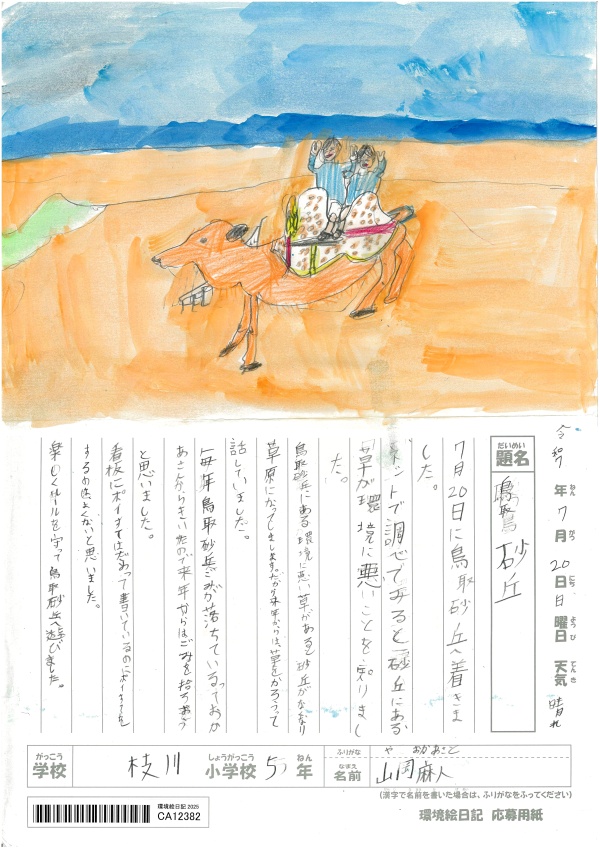 令和 年 7月 20日 日曜日 天気 晴れ
ねん がつ にち ようび てんき
だいめい
題名
鳥取砂丘
7月20日に鳥取砂丘へ着きま
した。
ネットで調べてみると「砂丘にある
草が環境に悪いことを知りまし
た。
鳥取砂丘にある環境に悪い草があると砂丘がなくなり
草原になってしまいます。だから来年からは、草をかろうって
話していました。
毎年鳥取砂丘ごみが落ちているっておか
あさんからきいたので来年からはごみを拾ろおう
と思いました。
看板にポイすてはだめって書いているのにポイすてを
するのはよくないと思いました。
楽しくルールを守って鳥取砂丘へ遊びました。
がっこう
学校
枝川
しょうがっこう
小学校
5
ねん
年
ふりがな
やまおかあさと
なまえ
名前
山岡麻人
(漢字で名前を書いた場合は、ふりがなをふってください)
環境絵日記 2025
CA12382
環境絵日記 応募用紙